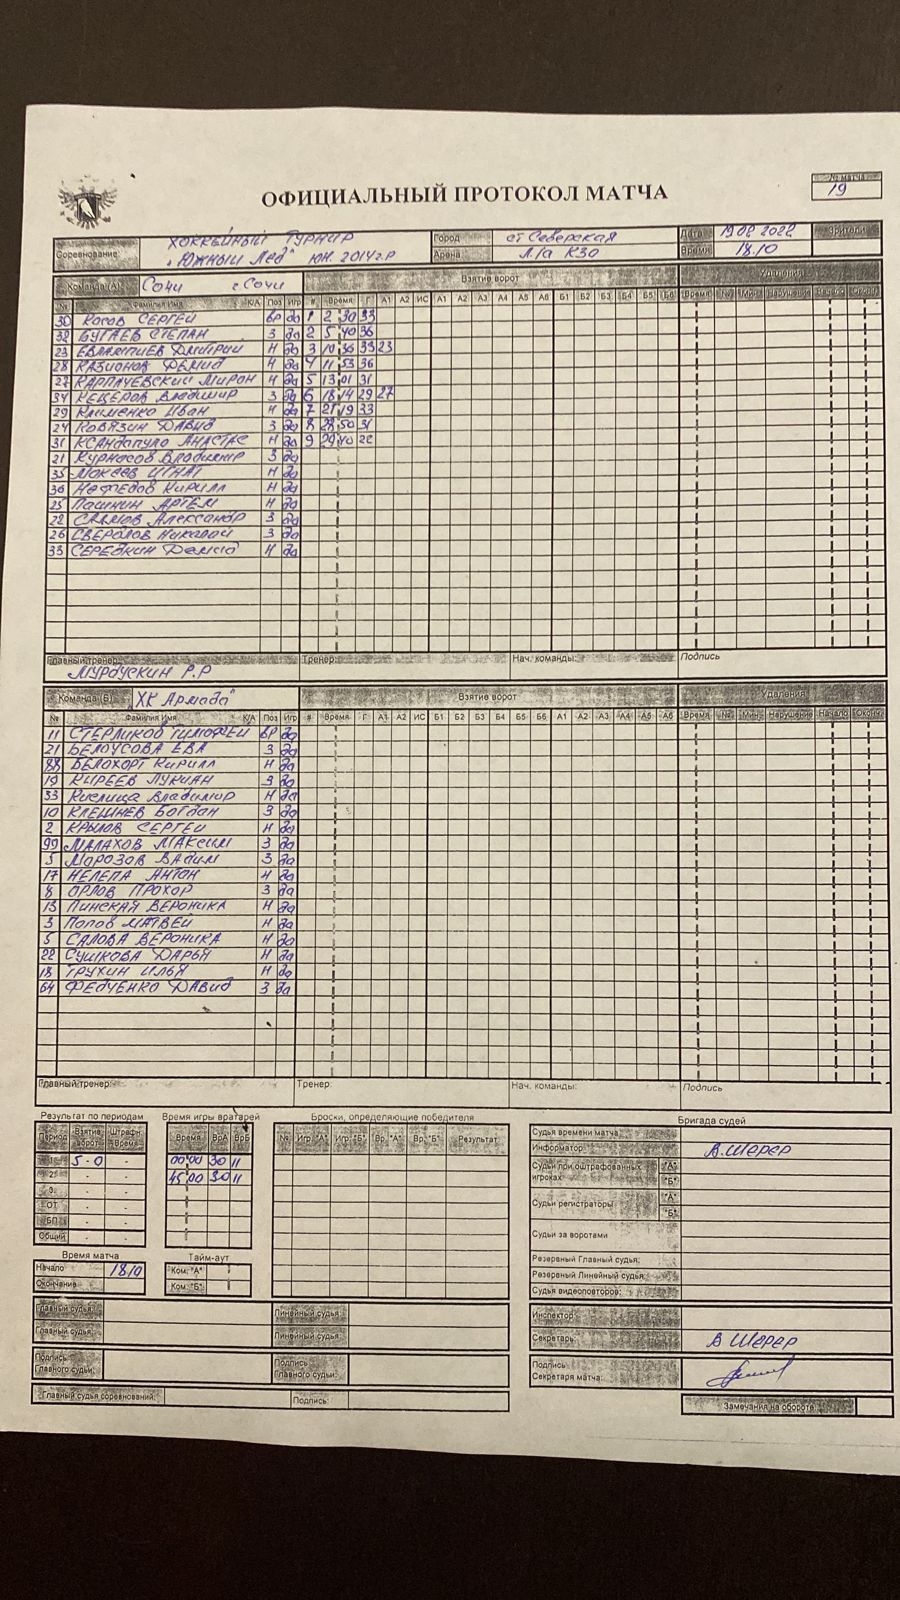 ОФИЦИАЛЬНЫЙ ПРОТОКОЛ МАТЧА
№ матча 19
Соревнование: ХОККЕЙНЫЙ ТУРНИР "Южный Лёд" ЮН. 2014 г.р
Город ст Северская Дата 19 02 2022 Зрители
Арена Время 18.10
Команда (А) Сочи г Сочи Взятие ворот Удаления
№ Фамилия Имя К/А Поз Игр # Время Г А1 А2 ИС А1 А2 А3 А4 А5 А6 Б1 Б2 Б3 Б4 Б5 Б6 Время № Мин Нарушение Начало
30 Косов СЕРГЕЙ ВР да 1 2 30 33
32 БУГАЕВ СТЕПАН З да 2 5 40 36
23 Дмитрий Н да 3 10 36 33 23
28 КАЗИОНОВ ДЕМИД Н да 4 11 53 36
27 КАРПАЧЕВСКИЙ МИРОН Н да 5 13 01 31
34 КЕЦЕРОВ Владимир З да 6 18 14 29 27
29 Клименко Иван Н да 7 21 19 33
24 Ковязин ДАВИД З да 8 28 50 31
31 КСАНДОПУЛО АНАСТАС Н да 9 29 40 22
21 Курносов Владимир З да
35 Мокеев ИГНАТ Н да
36 Нефедов Кирилл Н да
25 Пашнин АРТЕМ Н да
22 Александр З да
26 Николай З да
33 СЕРЕБКИН Демид Н да
Главный тренер: Тренер: Нач. команды: Подпись
Р.Р
Команда (Б) "ХК Армада" Взятие ворот Удаления
№ Фамилия Имя К/А Поз Игр # Время Г А1 А2 ИС Б1 Б2 Б3 Б4 Б5 Б6 А1 А2 А3 А4 А5 А6 Время № Мин Нарушение Начало Оконч
11 СТЕРЛИКОВ ТИМОФЕЙ ВР да
21 БЕЛОУСОВА ЕВА З да
88 БЕЛОХОРТ Кирилл Н да
19 КИРЕЕВ ЛУКИАН З да
33 Кислица Владимир Н да
10 КЛЕШНЕВ Богдан З да
2 КРЫЛОВ СЕРГЕЙ Н да
99 МАЛАХОВ МАКСИМ З да
МОРОЗОВ ВАДИМ З да
17 НЕЛЕПА АНТОН Н да
8 ОРЛОВ ПРОХОР З да
13 ПИНСКАЯ ВЕРОНИКА Н да
3 Попов МАТВЕЙ Н да
5 САЛОВА ВЕРОНИКА Н да
22 СУШКОВА ДАРЬЯ Н да
18 ТРУХИН ИЛЬЯ Н да
64 ФЕДЧЕНКО ДАВИД З да
Главный тренер: Тренер: Нач. команды: Подпись
Результат по периодам
Период Взятие ворот Штрафн. Время
1 5 - 0 -
2 - -
3 - -
ОТ - -
БП - -
Общий - -
Время матча
Начало 18 10
Окончание
Время игры вратарей
Время ВрА ВрБ
00 00 30 11
45 00 30 11
Тайм-аут
Ком. "А"
Ком. "Б"
Броски, определяющие победителя
№ Игр."А" Игр."Б" Вр."А" Вр."Б" Результат
Бригада судей
Судья времени матча
Информатор: В.ШЕРЕР
Судьи при оштрафованных игроках "А" "Б"
Судьи регистраторы "А" "Б"
Судьи за воротами
Резервный Главный судья:
Резервный Линейный судья:
Судья видеоповторов:
Главный судья: Линейный судья Инспектор
Главный судья: Линейный судья Секретарь: В ШЕРЕР
Подпись Главного судьи: Подпись Главного судьи: Подпись Секретаря матча:
Главный судья соревнований: Подпись: Замечания на обороте